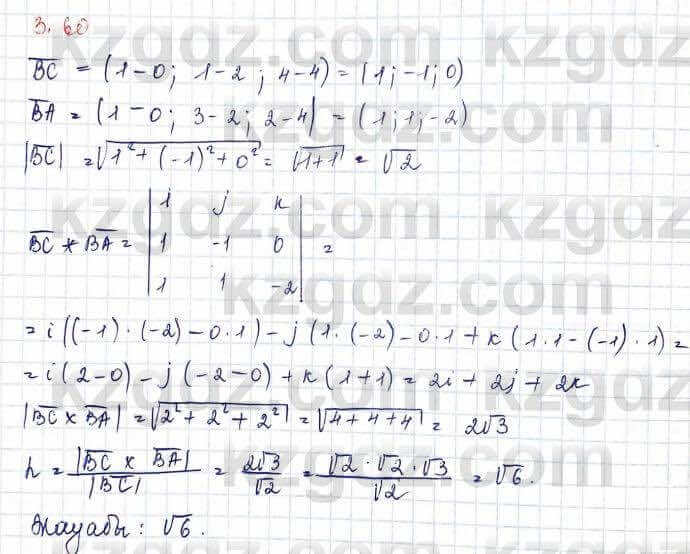 3.60
BC = (1-0; 1-2; 4-4) = (1; -1; 0)
BA = (1-0; 3-2; 2-4) = (1; 1; -2)
|BC| = √1²+(-1)²+0² = √1+1 = √2
i j k
BC * BA = 1 -1 0 =
1 1 -2
= i((-1)·(-2)-0·1) - j(1·(-2)-0·1 + k(1·1-(-1)·1) =
= i(2-0) - j(-2-0) + k(1+1) = 2i + 2j + 2k
|BC x BA| = √2²+2²+2² = √4+4+4 = 2√3
h = |BC x BA| / |BC| = 2√3/√2 = √2·√2·√3/√2 = √6.
Жауабы: √6.
kzgdz.com
kzgdz.com
kzgdz.com
kzgdz.com
kzgdz.com
kzgdz.com